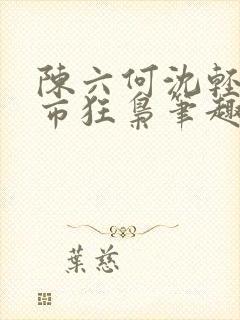 陳六何沈輕
市狂梟筆趣
葉慈